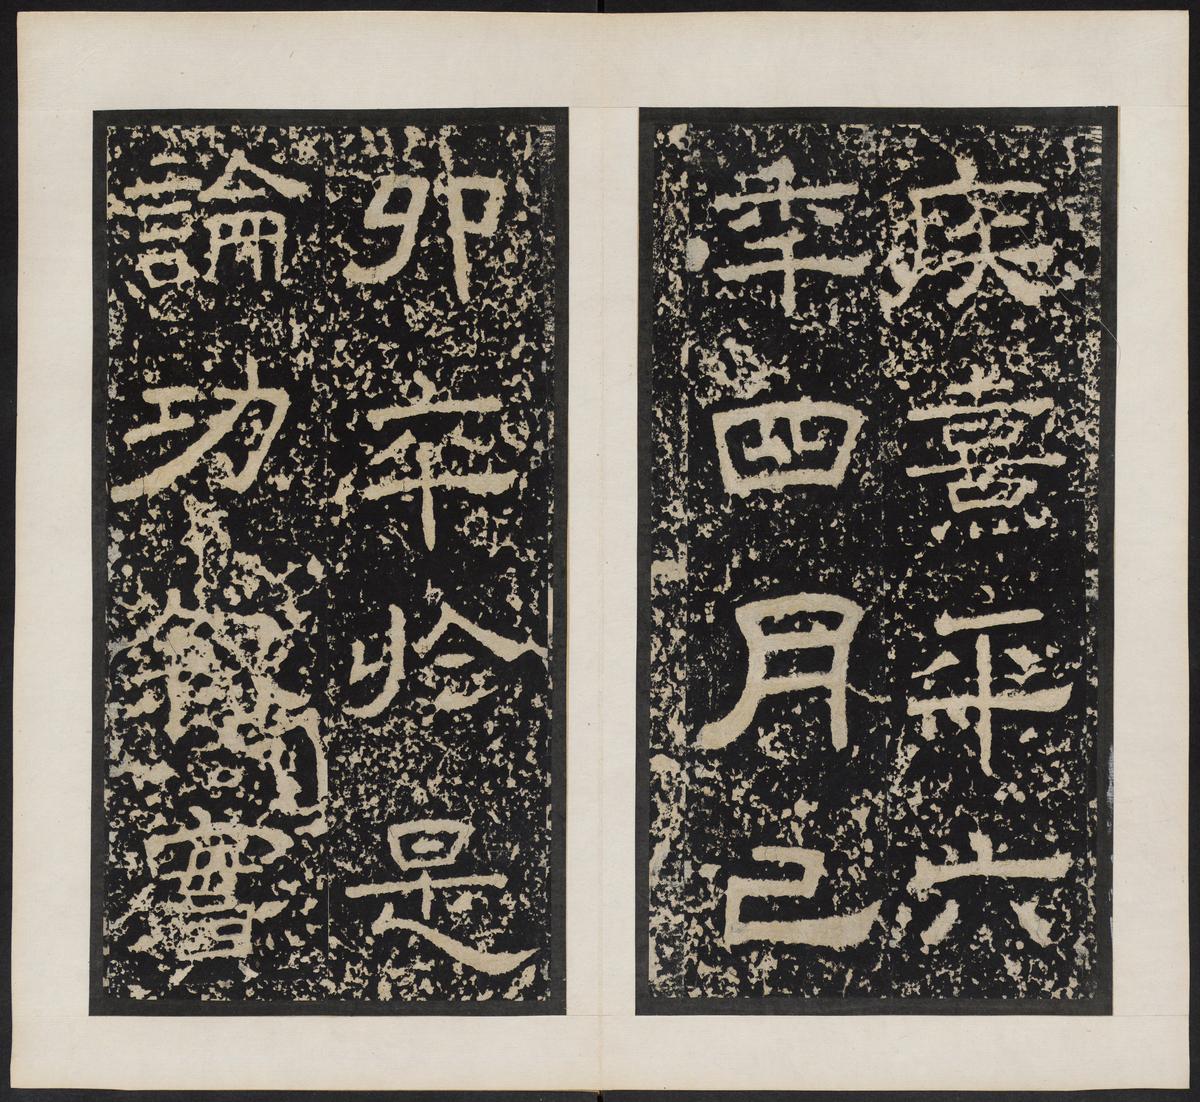 疾熹平六
年四月己
卯卒於是
論功實